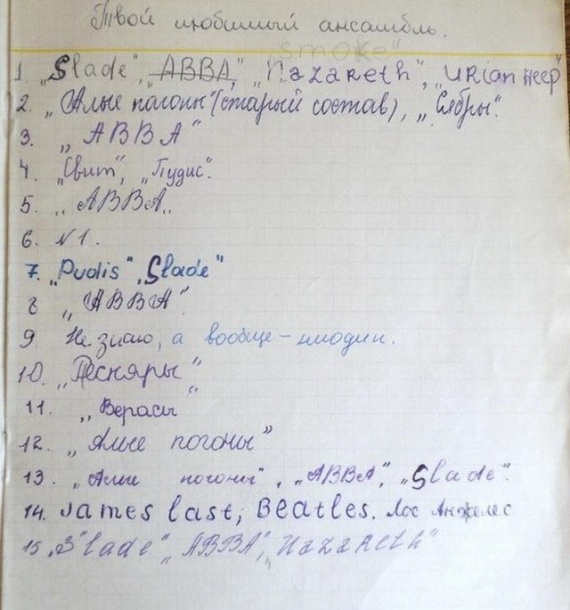 Твой любимый ансамбль.
„Smoke"
1. „Slade", „ABBA", „Nazareth", „URian HEEP"
2. „Алые погоны" (старый состав), „Сябры".
3. „ABBA"
4. „Свит", „Пудис".
5. „ABBA„
6. N 1.
7. „Pudis" „Slade"
8 „ABBA".
9 Не знаю, а вообще - ни один.
10. „Песняры"
11. „Верасы"
12. „Алые погоны"
13. „Алые погоны", „ABBA", „Slade".
14. James last, Beatles. Лос Анжелес
15. „Slade" „ABBA", „Nazareth"